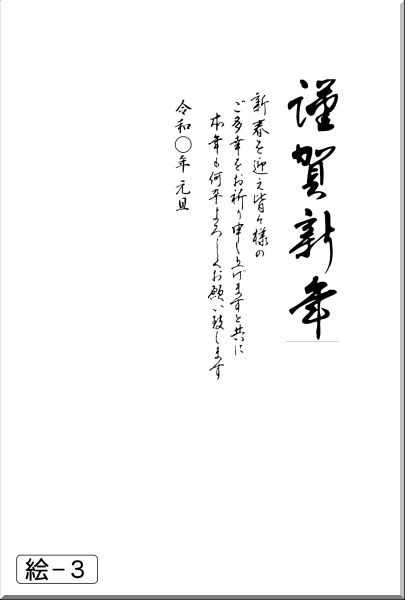 謹賀新年
新春を迎え皆々様の
ご多幸をお祈り申し上げますと共に
本年も何卒よろしくお願い致します
令和〇年 元旦
絵−3